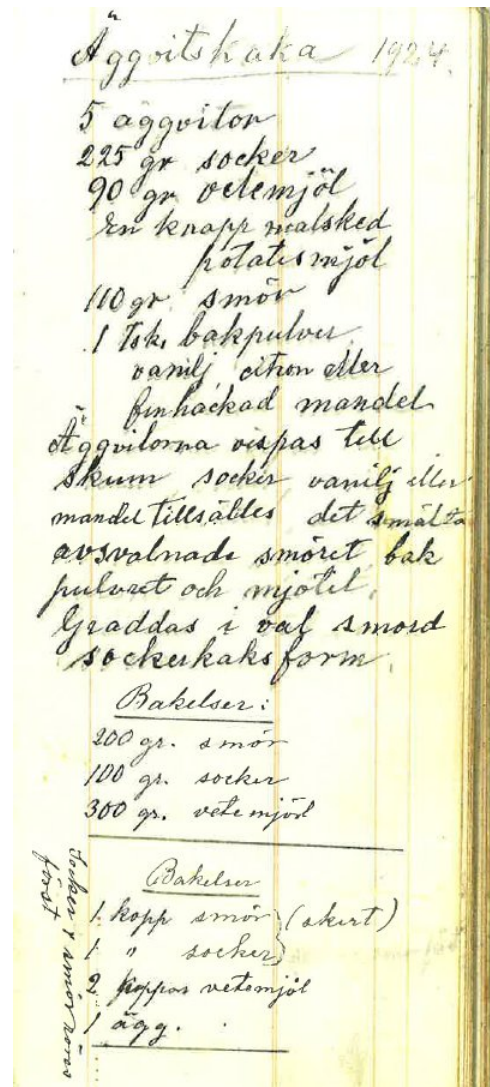 Äggvitskaka 1924.
5 äggvitor
225 gr socker
90 gr vetemjöl
En knapp matsked
potatismjöl
110 gr. smör
1 Tsk. bakpulver
vanilj, citron eller
finhackad mandel
Äggvitorna vispas till
skum socker vanilj eller
mandel tillsättes det smälta
avsvalnade smöret bak
pulvret och mjölet.
Gräddas i väl smord
sockerkaksform.
Bakelser:
200 gr. smör
100 gr. socker
300 gr. vetemjöl
Bakelser
1 kopp smör (skirt)
1 " socker
2 koppar vetemjöl
1 ägg.
Socker & smör röres
först